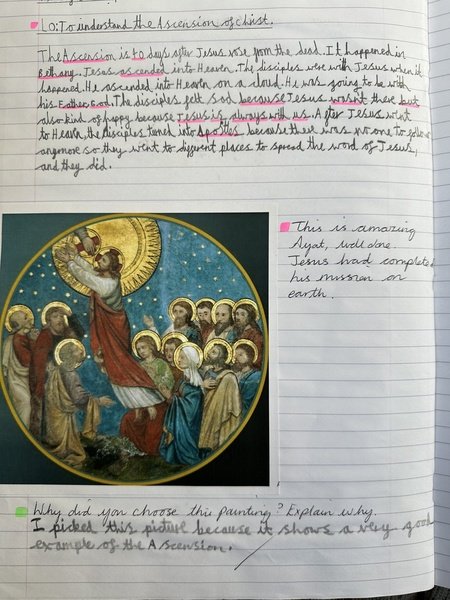 LO: To understand the Ascension of Christ.
The Ascension is 40 days after Jesus rose from the dead. It happened in
Bethany. Jesus ascended into Heaven. The disciples were with Jesus when it
happened. He ascended into Heaven on a cloud. He was going to be with
his Father God. The disciples felt sad because Jesus wasn't there but
also kind of happy because Jesus is always with us. After Jesus went
to Heaven the disciples turned into Apostles because there was no one to follow
anymore so they went to different places to spread the word of Jesus,
and they did.
This is amazing
Ayat, well done.
Jesus had completed
his mission on
earth.
Why did you choose this painting? Explain why.
I picked this picture because it shows a very good
example of the Ascension.